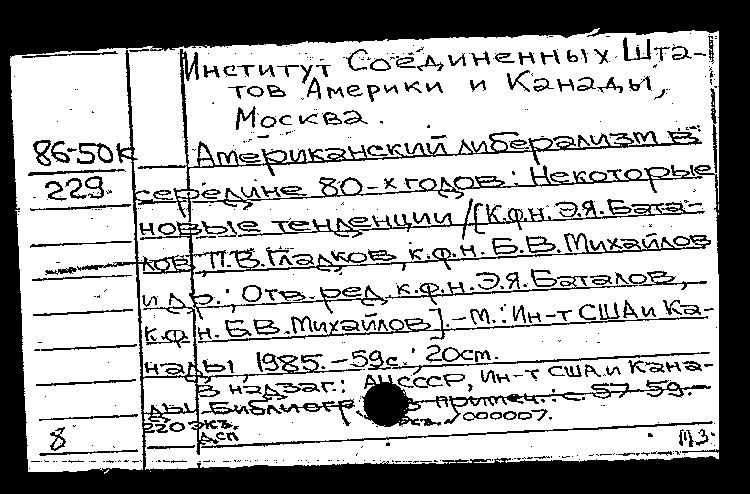 Институт Соединенных Шта-
тов Америки и Канады,
Москва.
86-50к
229.
Американский либерализм в
середине 80-х годов: Некоторые
новые тенденции /[К.ф.н. Э.Я. Бата-
лов, П.В. Гладков, к.ф.н. Б.В. Михайлов
и др.; Отв. ред. к.ф.н. Э.Я. Баталов,
к.ф.н. Б.В. Михайлов]. - М.: Ин-т США и Ка-
нады, 1985. - 59с.; 20ст.
В надзаг.: АН СССР, Ин-т США и Кана-
ды. Библиогр. в примеч.: с. 57-59. -
220 экз. 000007.
Дсп
8
МЗ.